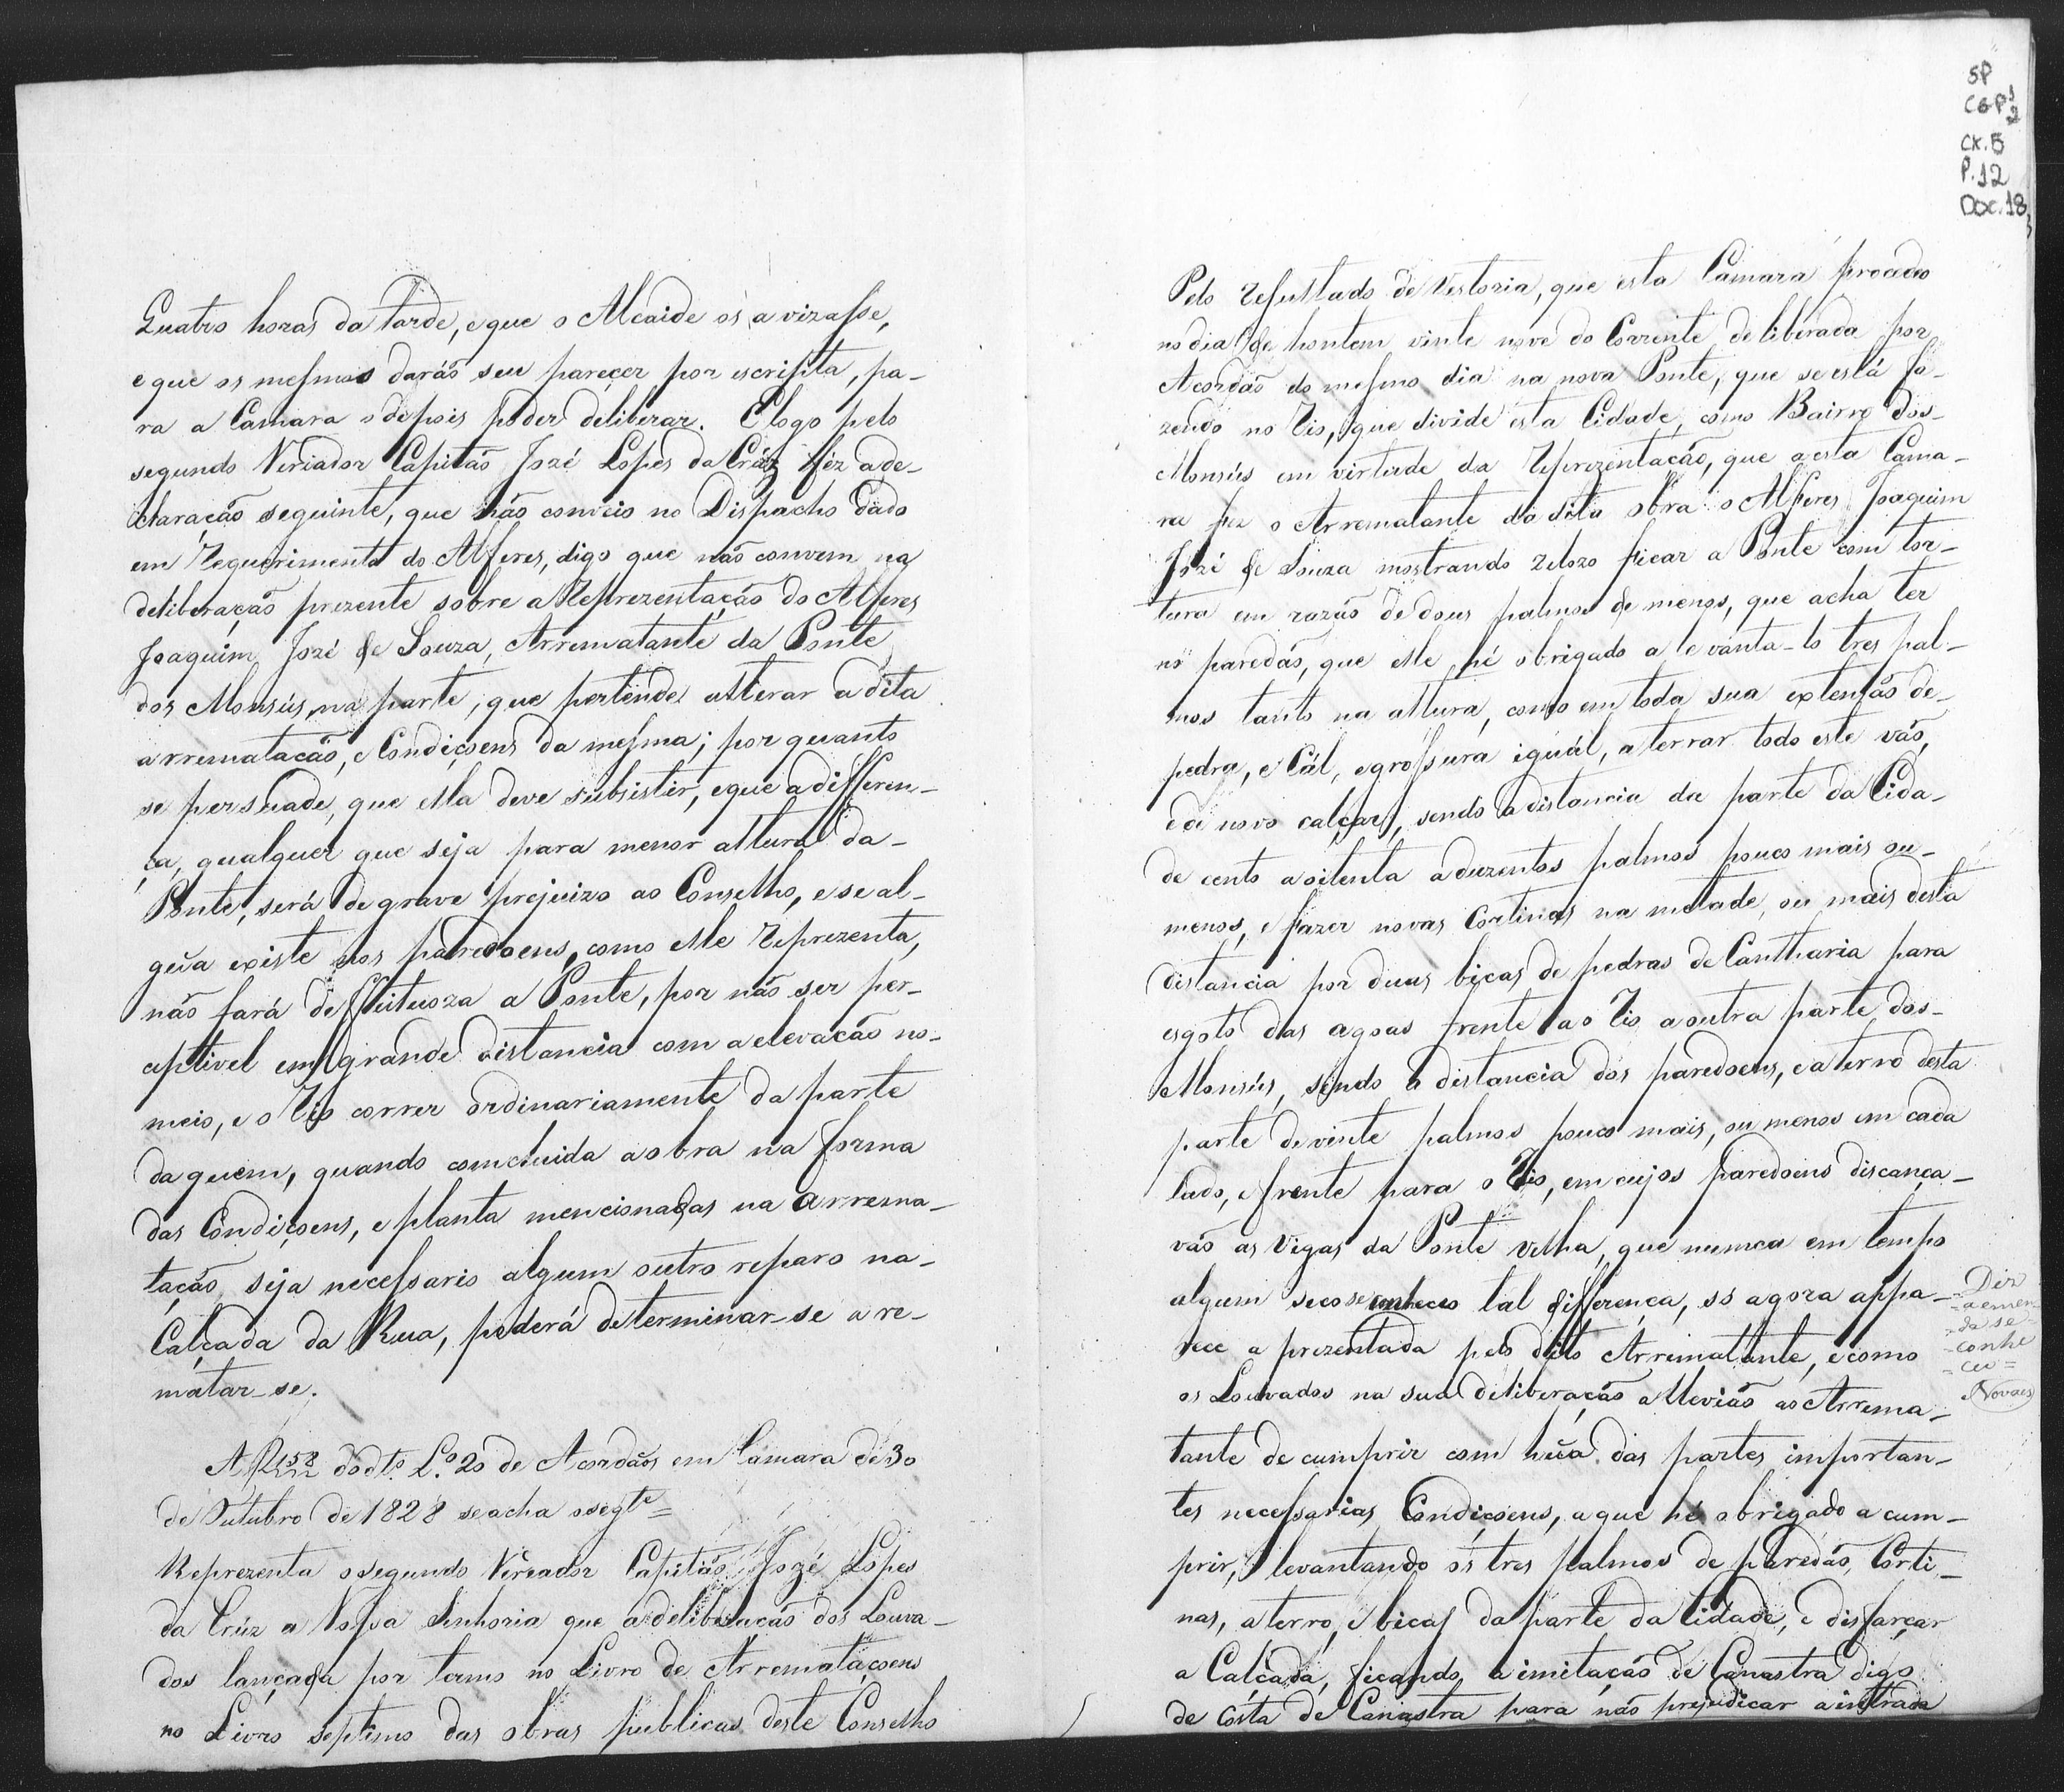 Quatro horas da tarde, e que o Alcaide os avizasse,
e que os mesmos darão seu parecer por escripta, pa-
ra a Camara o depois poder deliberar. E logo pelo
segundo Veriador Capitão Jozé Lopes da Crúz féz a de-
claração seguinte, que não conveio no Dispacho dado
em Requerimento do Alferes, digo que não convem na
deliberação prezente sobre a Reprezentação do Alferes
Joaquim Jozé de Souza, Arrematante da Ponte
dos Monsús, na parte, que pertende alterar a dita
arrematacão, e Condiçoens da mesma; por quanto
se persuade, que ella deve subsistir, e que a differen-
ça, qualquer que seja para menor altura da-
Ponte, será de grave prejuizo ao Conselho, e se al-
gũa existe nos paredoens, como elle reprezenta,
não fará deffeituoza a Ponte, por não ser per-
ceptivel em grande distancia com a elevacão no-
meio, e o Rio correr ordinariamente da parte
daquem, quando comcluida a obra na forma
das Condiçoens, e planta mencionadas na arrema-
tação, seja necessario algum outro reparo na-
Calçada da Rua, poderá determinar-se a re-
matar-se.
A f 158 do dto. L.o 20 de Acordãos em Camara de 30
de Outubro de 1828 se acha o segte =
Reprezenta o segundo Vereador Capitão Jozé Lopes
da Crúz a Vossa Senhoria que a deliberação dos Louva-
dos lançada por termo no Livro de Arremataçoens
no Livro septimo das obras publicas deste Conselho
SP
CGP 1 2
CX. 5
P. 12
DOC. 18
Pelo resultado de Vestoria, que esta Camara procedeo
no dia de hontem vinte nove do Corrente deliberada por
Acordão do mesmo dia na nova Ponte, que se está fa-
zendo no Rio, que divide esta Cidade, como Bairro dos-
Monsús em virtude da Reprezentacão, que a esta Cama-
ra fez o Arrematante da dita obra o Alferes Joaquim
Jozé de Souza mostrando zelozo ficar a Ponte com tor-
tura em razão de dous palmos de menos, que acha ter
no paredão, que elle hé obrigado a levanta-lo tres pal-
mos tanto na altura, como em toda sua extensão de-
pedra, e Cál, e grossura iguál, aterrar todo este vão,
e de novo calçar, sendo a distancia da parte da Cida-
de cento a oitenta a duzentos palmos pouco mais ou-
menos, e fazer novas Cortinas na metade, ou mais desta
distancia por duas bicas de pedras de Cantharia para
esgoto das agoas frente ao Rio a outra parte dos-
Monsús, sendo a distancia dos paredoens, e aterro desta
parte de vinte palmos pouco mais, ou menos em cada
lado, e frente para o Rio, em cujos paredoens discança-
vão as Vigas da Ponte velha, que numca em tempo
algum se conheceo tal differença, só agora appa-
rece a prezentada pelo dito Arrematante, e como
os Louvados na sua deliberação alleviãs ao Arrema-
tante de cumprir com hũa das partes importan-
tes necessarias Condiçoens, a que hé obrigado a cum-
prir, levantando os tres palmos de paredão, Corti-
nas, aterro, e bicas da parte da Cidade, e disfarçar
a Calçada, ficando a imitação de Canastra digo
de Costa de Canastra para não prejudicar a intrada
Diz
a emen-
da se-
conhe
ceu =
Novaes